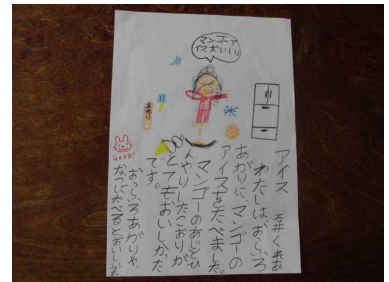 マンゴーア
イスおいしい
アイス 石井くれあ
わたしは、おふろ
あがりに、マンゴーの
アイスをたべました。
マンゴーのあじとひ
んやりしたこおりが
とてもおいしかった
です。
おふろあがりや、
なつにたべるとおいしい
GOOD!